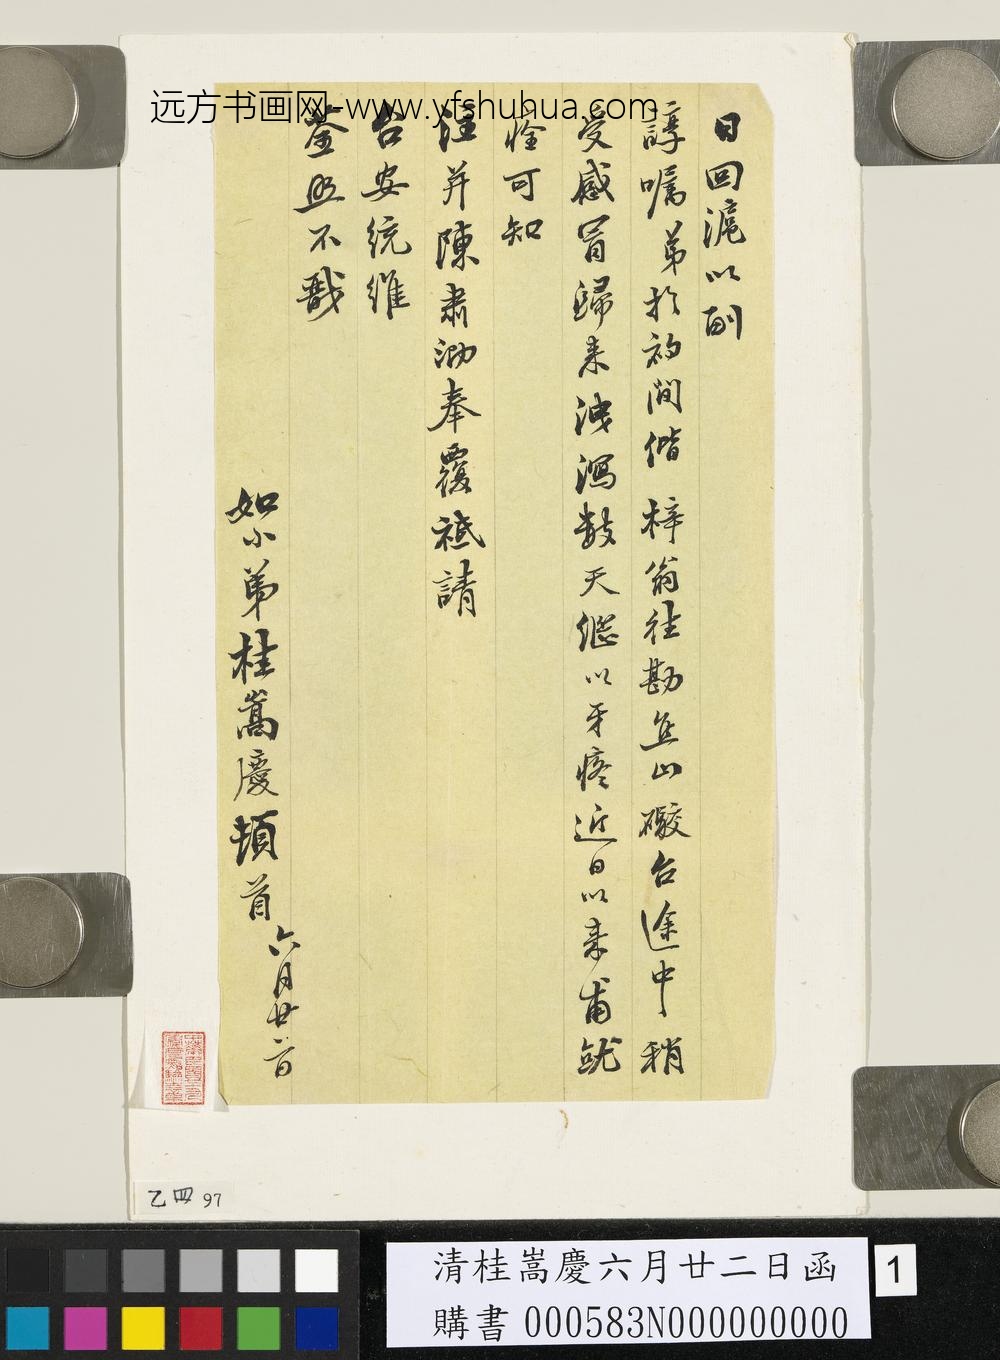 远方书画网-www.yfshuhua.com
日回滬以副
諄囑弟於初間偕梓翁往勘 山礮台途中稍
受感冒歸来洩瀉數天繼以牙疼近日以来甫就
痊可知
注并陳肅泐奉覆祗請
台安統維
詧照不戩
如小弟桂嵩慶頓首
六月廿二日
乙四97
清桂嵩慶六月廿二日函
購書000583N000000000
1